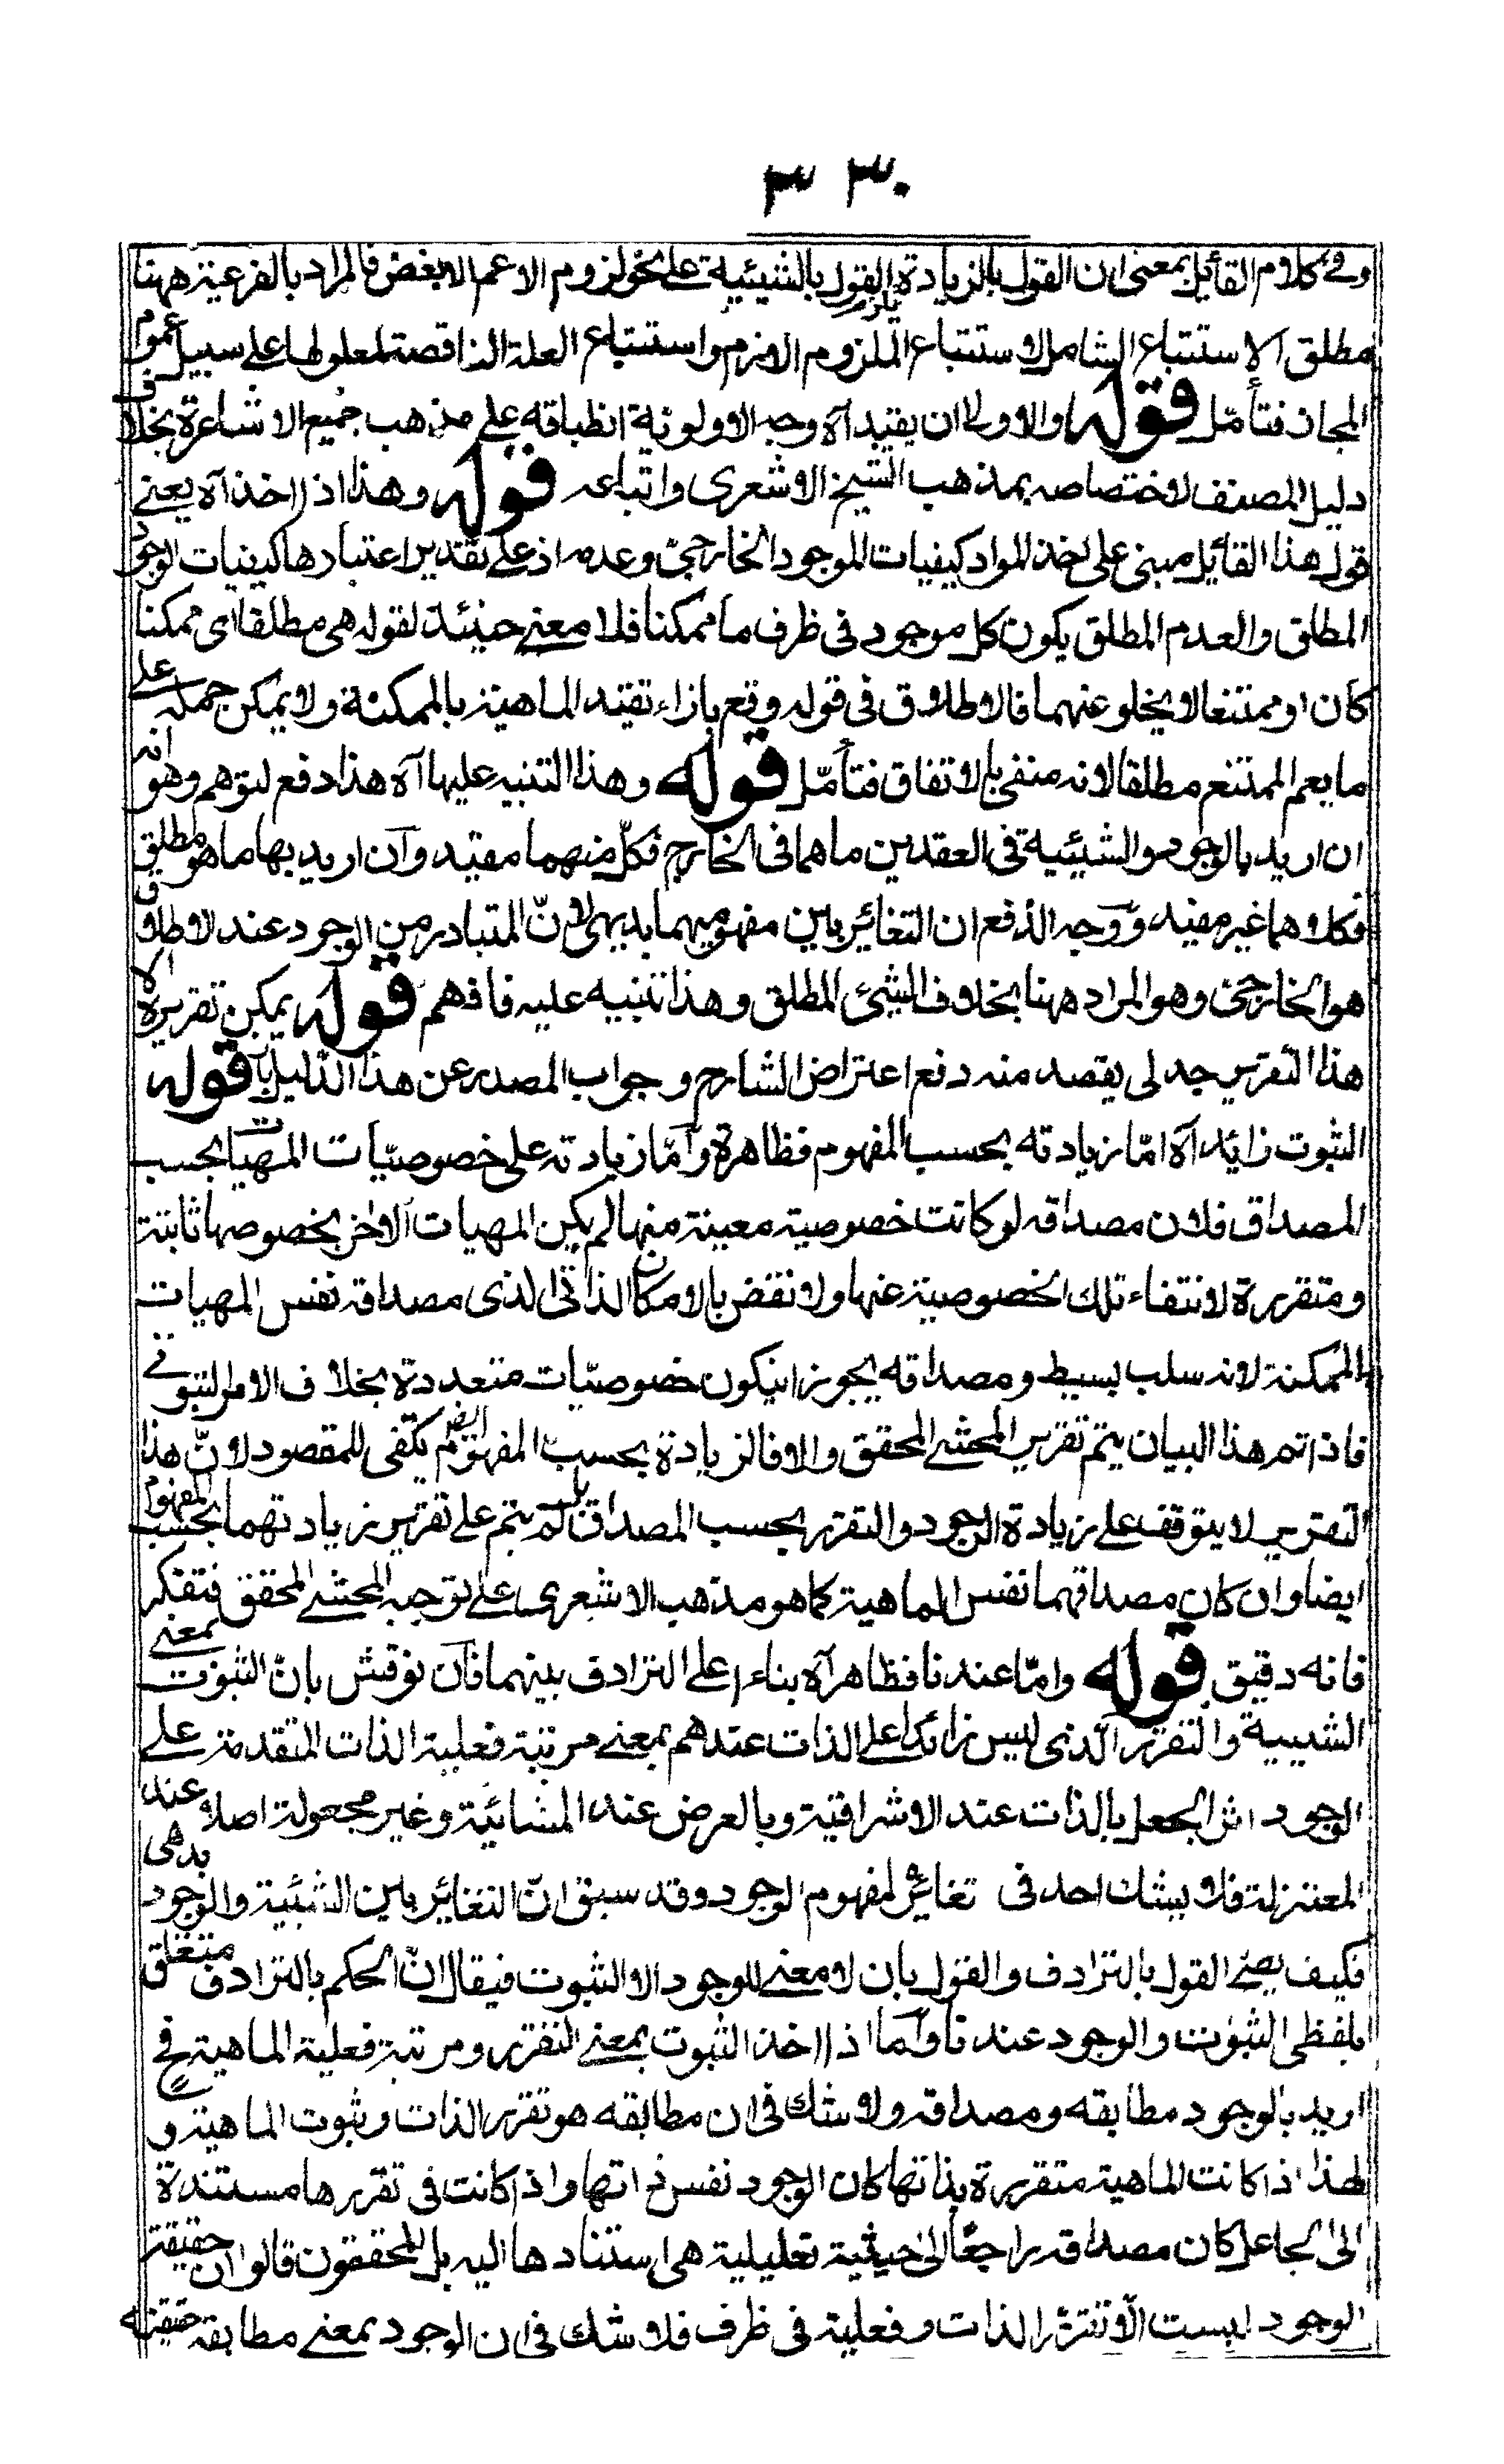 ٣٣٠
وفى كلام القائل بمعنى ان القول بالزيادة يلزم القول بالشيئية على نحو لزوم الاعم الاخص فالمراد بالفرعية ههنا
مطلق الاستتباع الشامل لاستتباع الملزوم اللازم واستتباع العلة الناقصة لمعلولها على سبيل عموم
المجاز فتأمّل قوله والاولى ان يقيد آه وجه الاولوية انطباقه على مذهب جميع الاشاعرة بخلاف
دليل المصنف لاختصاصه بمذهب الشيخ الاشعرى واتباعه قوله وهذا اذا اخذ آه يعنى
قول هذا القائل مبنى على اخذ المواد كيفيات الموجود الخارجىّ وعدمه اذ على تقدير اعتبارها كيفيات الوجود
المطلق والعدم المطلق يكون كل موجود فى ظرف ما ممكنا فلا معنى حينئذ لقوله هى مطلقا اى ممكنا
كان او ممتنعا لا يخلو عنهما فالاطلاق فى قوله وقع بازاء تقييد الماهية بالممكنة ولا يمكن حمله على
ما يعم الممتنع مطلقا لانه منفى بالاتفاق فتأمّل قوله وهذا التنبيه عليها آه هذا دفع لتوهم وهو انه
ان اريد بالوجود والشيئية فى العقدين ما هما فى الخارج فكلّ منهما مفيد وآن اريد بهما ما هو مطلق
فكلاهما غير مفيد ووجه الدفع ان التغاير بين مفهوميهما بديهى لانّ المتبادر من الوجود عند الاطلاق
هو الخارجىّ وهو المراد ههنا بخلاف الشيئ المطلق وهذا تنبيه عليه فافهم قوله يمكن تقريره الا
هذا التقرير جدلى يقصد منه دفع اعتراض الشارح وجواب المصدر عن هذا الدليل قوله
الثبوت زائد آه امّا زيادته بحسب المفهوم فظاهرة وآمّا زيادته على خصوصيّات المهيات بحسب
المصداق فلان مصداقه لو كانت خصوصية معينة منها لم يكن المهيات الاخر بخصوصها ثابتة
ومتقررة لانتفاء تلك الخصوصية عنها ولا نقض بالامكان الذاتى الذى مصداقه نفس المهيات
الممكنة لانه سلب بسيط ومصداقه يجوز ان يكون خصوصيّات متعددة بخلاف الامر الثبوتى
فاذا تم هذا البيان يتم تقرير المحشى المحقق والا فالزيادة بحسب المفهوم ايضا يكفى للمقصود لانّ هذا
التقرير لا يتوقف على زيادة الوجود والتقرر بحسب المصداق بل يتم على تقرير زيادتهما بحسب المفهوم
ايضا وان كان مصداقهما نفس الماهية كما هو مذهب الاشعرى على توجيه المحشى المحقق فتفكر
فانه دقيق قوله وامّا عندنا فظاهر آه بناء على الترادف بينهما فآن نوقش بانّ الثبوت بمعنى
الشيئية والتقرر الّذى ليس زائدا على الذات عندهم بمعنى مرتبة فعلية الذات المتقدمة على
الوجود اثر الجعل بالذات عند الاشراقية وبالعرض عند المشائية وغير مجعولة اصلا عند
المعتزلة فلا يشك احد فى تغايره لمفهوم الوجود وقد سبق انّ التغاير بين الشيئية والوجود بدهى
فكيف يصح القول بالترادف والقول بان لا معنى للوجود الا الثبوت فيقال انّ الحكم بالترادف متعلق
بلفظى الثبوت والوجود عندنا وآما اذا اخذ الثبوت بمعنى التقرر ومرتبة فعلية الماهية فح
اريد بالوجود مطابقه ومصداقه ولا شك فى ان مطابقه هو تقرر الذات وثبوت الماهية و
لهذا اذا كانت الماهية متقررة بذاتها كان الوجود نفس ذاتها واذا كانت فى تقررها مستندة
الى الجاعل كان مصداقه راجعًا الى حيثية تعليلية هى استنادها اليه بل المحققون قالوا ان حقيقة
الوجود ليست الّا تقرّر الذات وفعلية فى ظرف فلا شك فى ان الوجود بمعنى مطابقه حقيقته